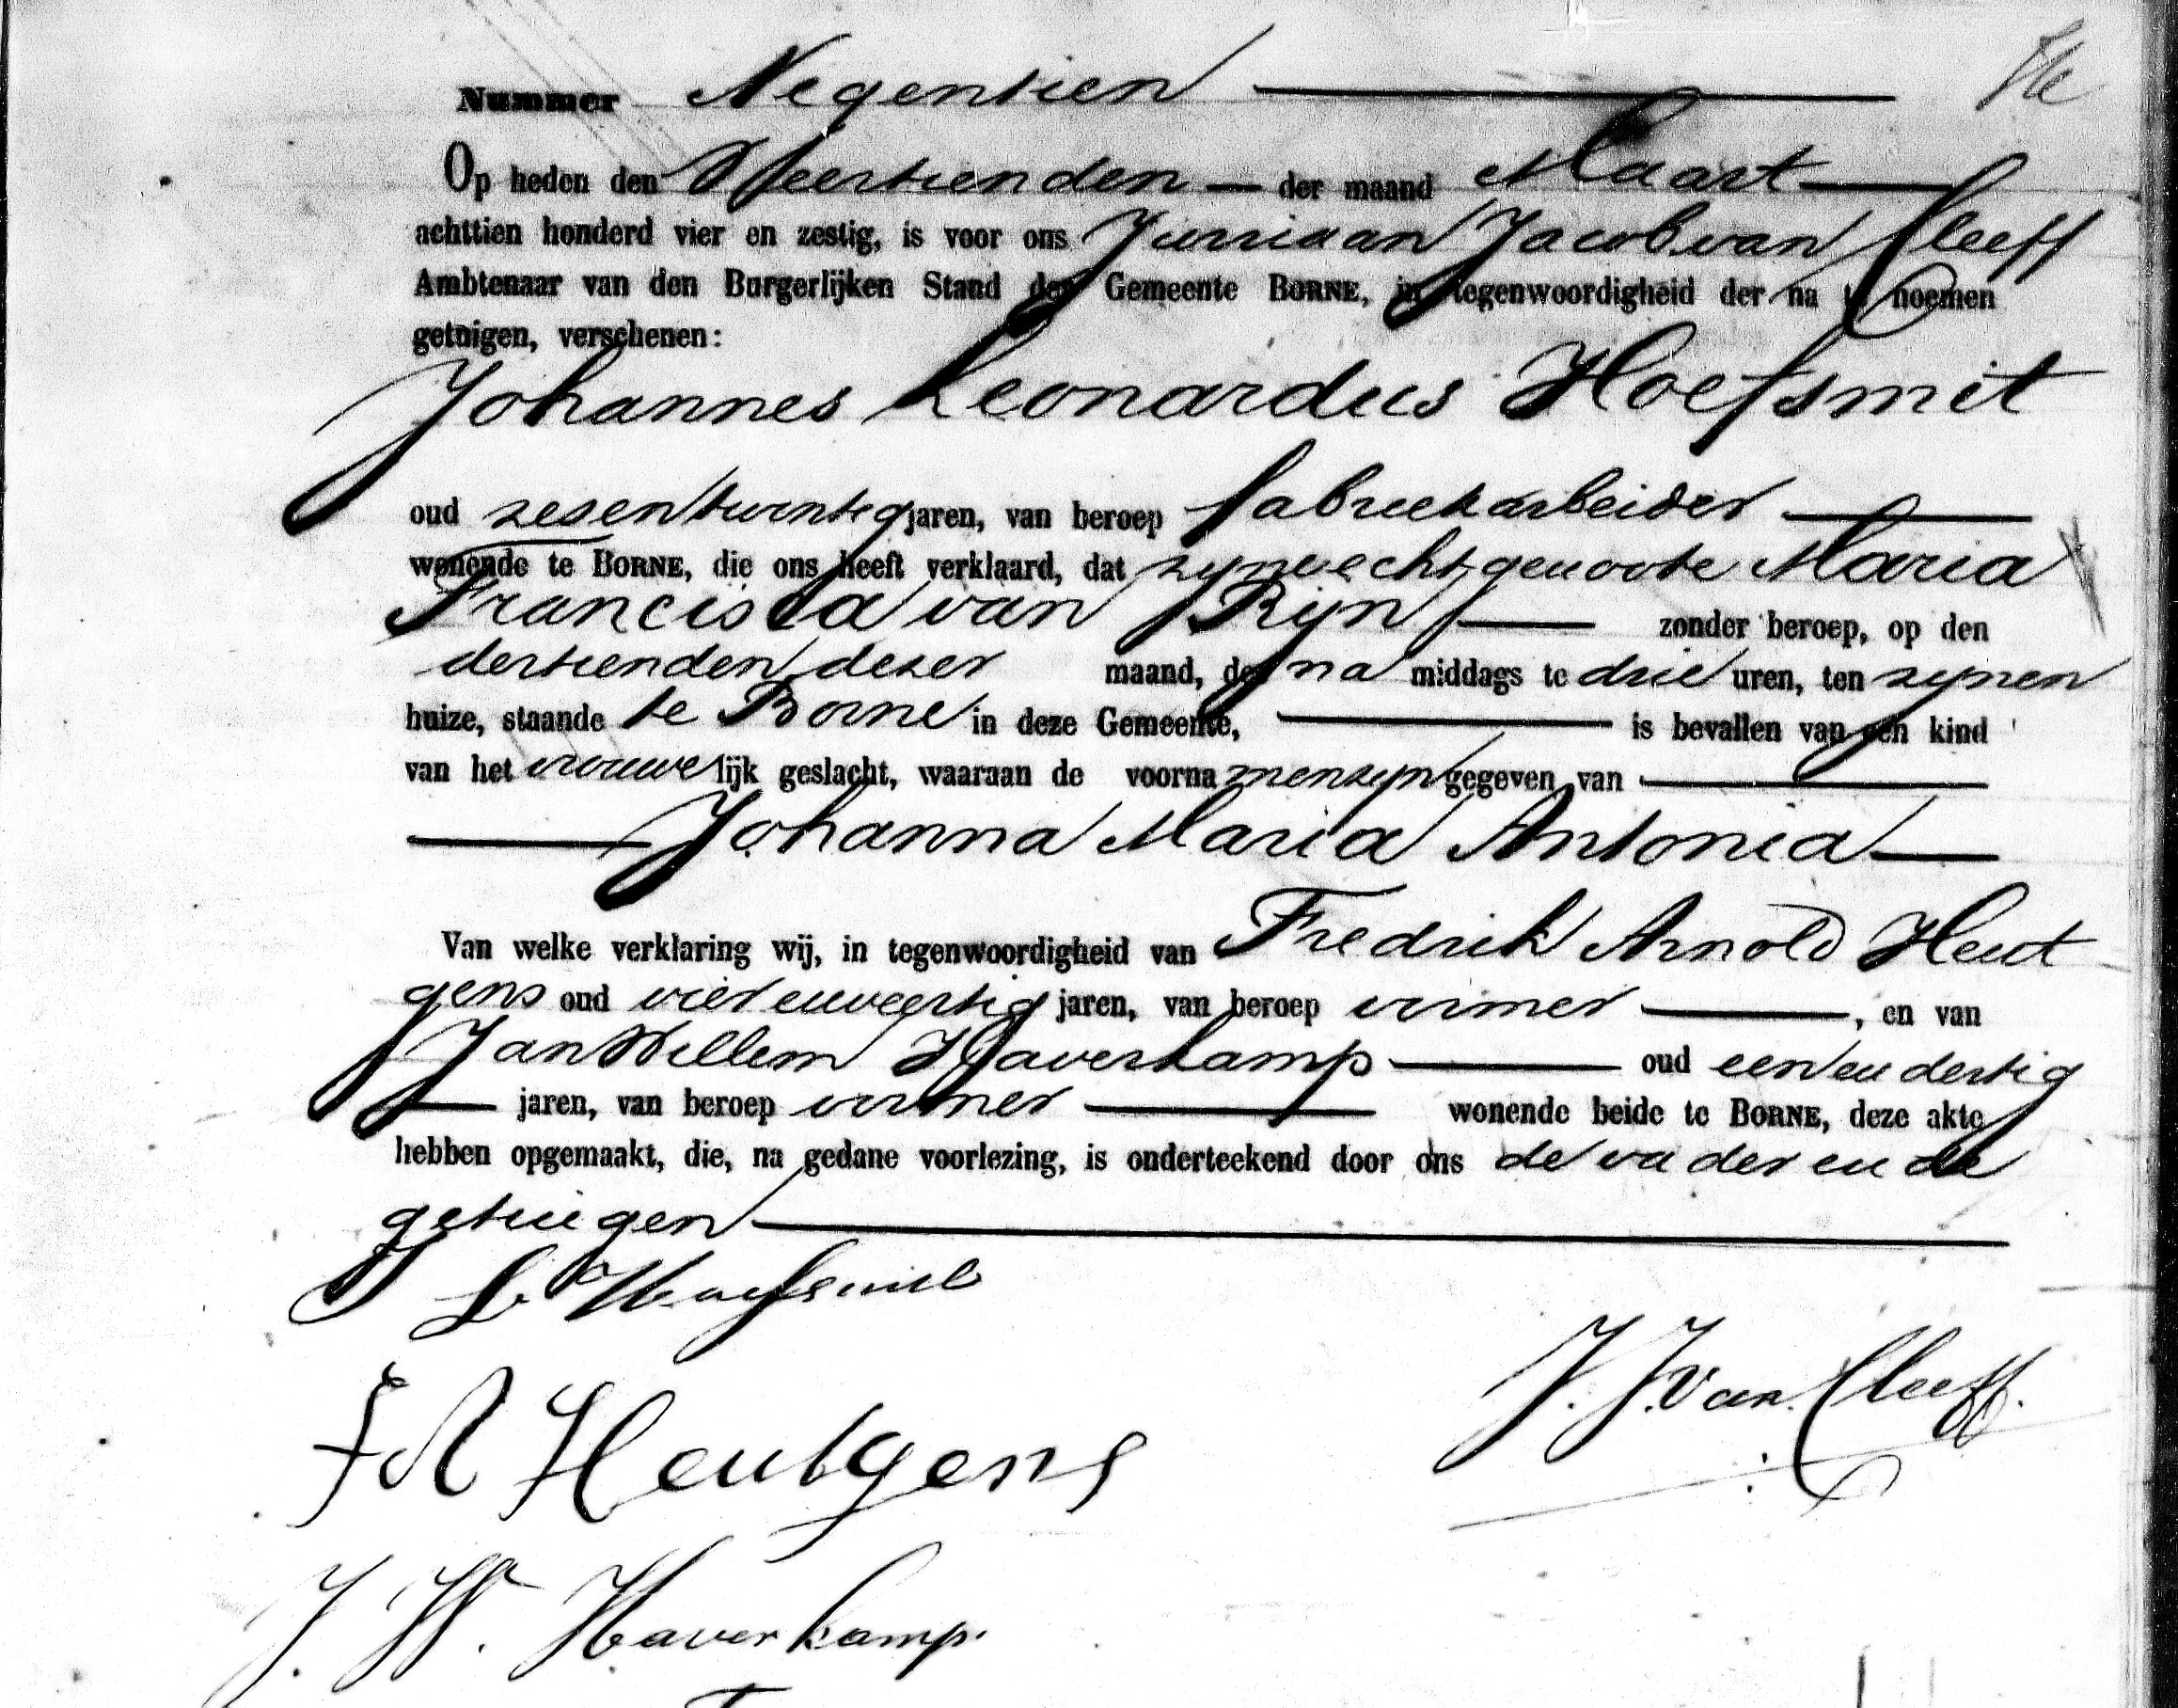 Nummer Negentien
Op heden den Veertienden der maand Maart
achttien honderd vier en zestig, is voor ons Jurriaan Jacob van Cleeff
Ambtenaar van den Burgerlijken Stand der Gemeente BORNE, in tegenwoordigheid der na te noemen
getuigen, verschenen:
Johannes Leonardus Hoefsmit
oud zesentwintig jaren, van beroep fabriekarbeider
wonende te BORNE, die ons heeft verklaard, dat zyne echtgenoote Maria
Francisca van Ryn zonder beroep, op den
dertienden dezer maand, des na middags te drie uren, ten zynen
huize, staande te Borne in deze Gemeente, is bevallen van een kind
van het vrouwelijk geslacht, waaraan de voornamen zyn gegeven van
Johanna Maria Antonia
Van welke verklaring wij, in tegenwoordigheid van Fredrik Arnold Heut
gens oud vierenveertig jaren, van beroep verwer, en van
Jan Willem Haverkamp oud een en dertig
jaren, van beroep verwer wonende beide te BORNE, deze akte
hebben opgemaakt, die, na gedane voorlezing, is onderteekend door ons de vader en de
getuigen
J L Hoefsmit
J. J. van Cleeff.
F A Heutgens
J. W. Haverkamp.